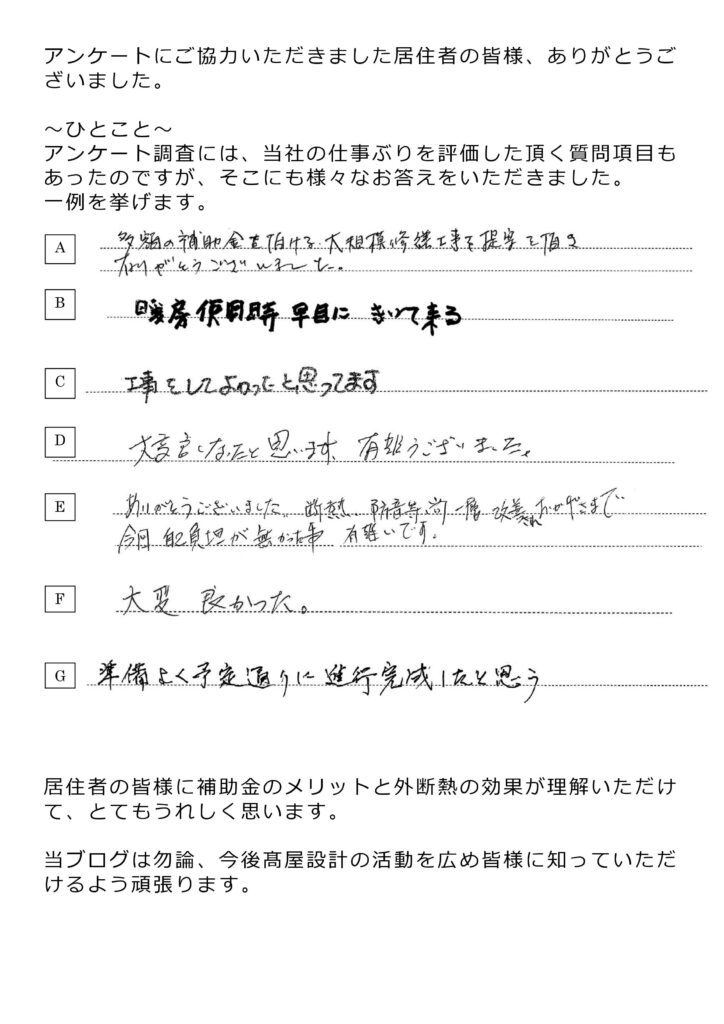 アンケートにご協力いただきました居住者の皆様、ありがとうご
ざいました。
～ひとこと～
アンケート調査には、当社の仕事ぶりを評価した頂く質問項目も
あったのですが、そこにも様々なお答えをいただきました。
一例を挙げます。
A 多額の補助金を頂ける大規模修繕工事を提案を頂き
ありがとうございました。
B 暖房使用時 早目に きいて来る
C 工事をしてよかったと思ってます
D 大変 なったと思います 有難うございました。
E ありがとうございました。断熱、防音等尚一層改善され おかげさまで
今回 自己負担が無かった事 有難いです。
F 大変 良かった。
G 準備よく予定通りに進行完成したと思う
居住者の皆様に補助金のメリットと外断熱の効果が理解いただけ
て、とてもうれしく思います。
当ブログは勿論、今後髙屋設計の活動を広め皆様に知っていただ
けるよう頑張ります。